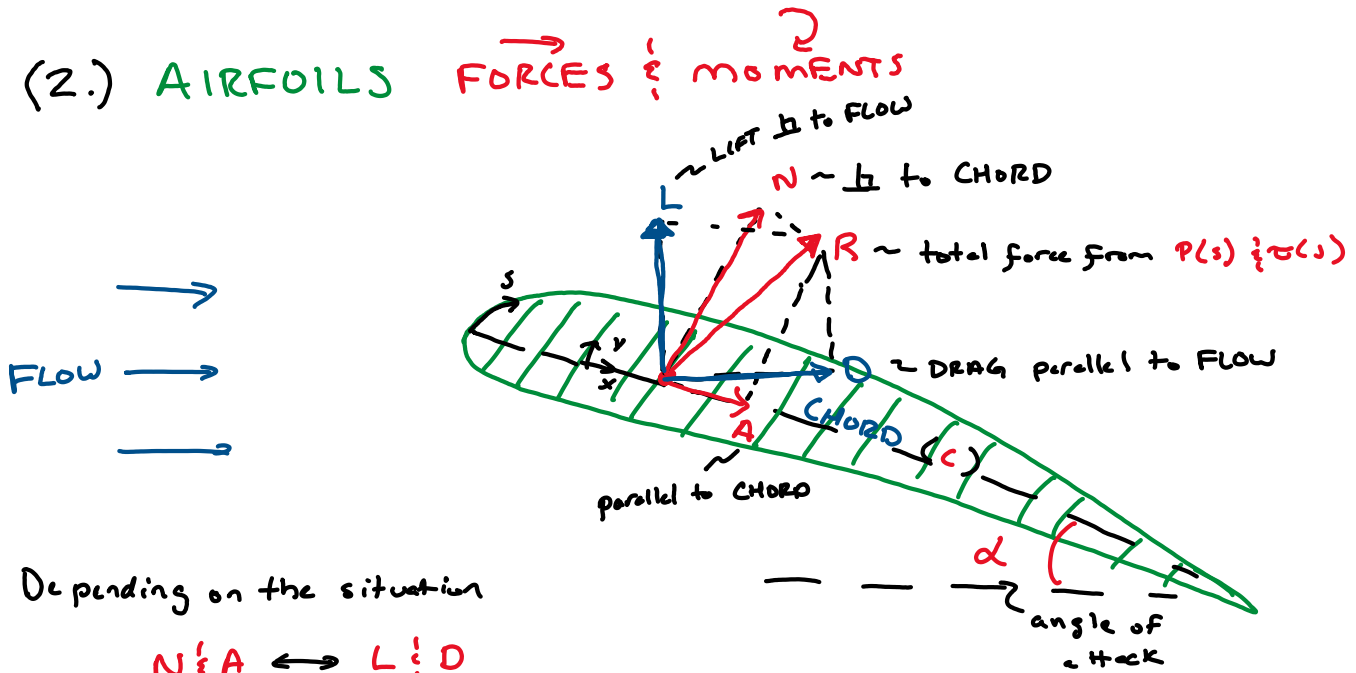 (2.) AIRFOILS FORCES & MOMENTS
~ LIFT ⊥ to FLOW
L
N ~ ⊥ to CHORD
R ~ total force from P(s) & τ(s)
s
y
x
FLOW
D ~ DRAG parallel to FLOW
A
CHORD (c)
parallel to CHORD
α
angle of
attack
Depending on the situation
N & A ↔ L & D